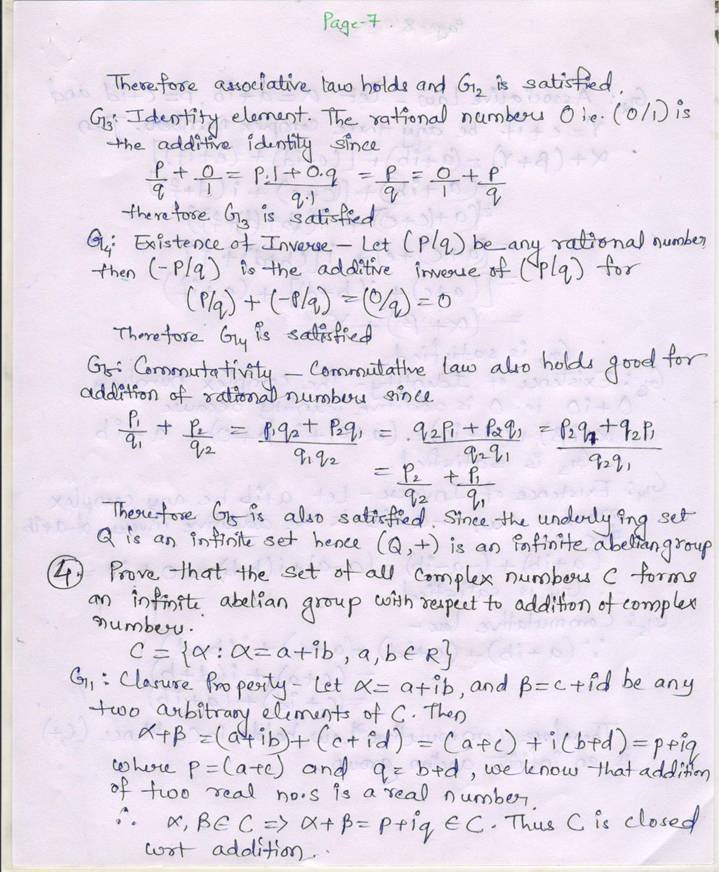 Page-7.
Therefore associative law holds and G₂ is satisfied.
G₃: Identity element. The rational numbers 0 i.e. (0/1) is
the additive identity since
p/q + 0/1 = (p·1 + 0·q)/(q·1) = p/q = 0/1 + p/q
therefore G₃ is satisfied
G₄: Existence of Inverse – Let (p/q) be any rational number
then (-p/q) is the additive inverse of (p/q) for
(p/q) + (-p/q) = (0/q) = 0
Therefore G₄ is satisfied
G₅: Commutativity – Commutative law also holds good for
addition of rational numbers since
p₁/q₁ + p₂/q₂ = (p₁q₂ + p₂q₁)/(q₁q₂) = (q₂p₁ + p₂q₁)/(q₂q₁) = (p₂q₁ + q₂p₁)/(q₂q₁)
= p₂/q₂ + p₁/q₁
Therefore G₅ is also satisfied. Since the underlying set
Q is an infinite set hence (Q,+) is an infinite abelian group
4. Prove that the set of all complex numbers C forms
an infinite abelian group with respect to addition of complex
numbers.
C = {α : α = a+ib, a, b ∈ R}
G₁: Closure Property – Let α = a+ib, and β = c+id be any
two arbitrary elements of C. Then
α+β = (a+ib) + (c+id) = (a+c) + i(b+d) = p+iq
where p = (a+c) and q = b+d, we know that addition
of two real no.s is a real number.
∴ α, β ∈ C => α+β = p+iq ∈ C. Thus C is closed
wrt addition.